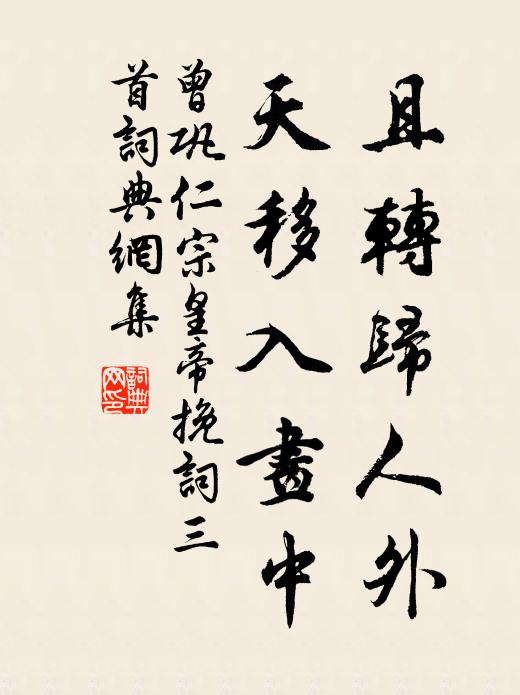 且轉歸人外
天移入畫中
曾巩仁宗皇帝挽詞三
首詞典網集
詞典
网印